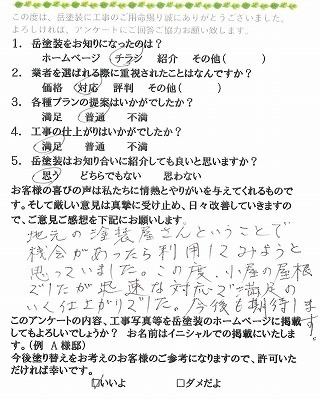 この度は、岳塗装に工事のご用命賜り誠にありがとうございました。
よろしければ、アンケートにご回答ご協力お願い致します。
1. 岳塗装をお知りになったのは？
ホームページ チラシ 紹介 その他( )
2. 業者を選ばれる際に重視されたことはなんですか？
価格 対応 評判 その他( )
3. 各種プランの提案はいかがでしたか？
満足 普通 不満
4. 工事の仕上がりはいかがでしたか？
満足 普通 不満
5. 岳塗装はお知り合いに紹介しても良いと思いますか？
思う どちらでもない 思わない
お客様の喜びの声は私たちに情熱とやりがいを与えてくれるもので
す。そして厳しい意見は真摯に受け止め、日々改善していきますの
で、ご意見ご感想を下記にお願いします。
地元の塗装屋さんということで
機会があったら利用してみようと
思っていました。この度、小屋の屋根
でしたが迅速な対応でご満足の
いく仕上がりでした。今後も期待します。
このアンケートの内容、工事写真等を岳塗装のホームページに掲載
してもよろしいでしょうか？ お名前はイニシャルでの掲載にいたしま
す。（例 A様邸）
今後塗り替えをお考えのお客様のご参考になりますので、許可いた
だければ幸いです。
☑いいよ □ダメだよ